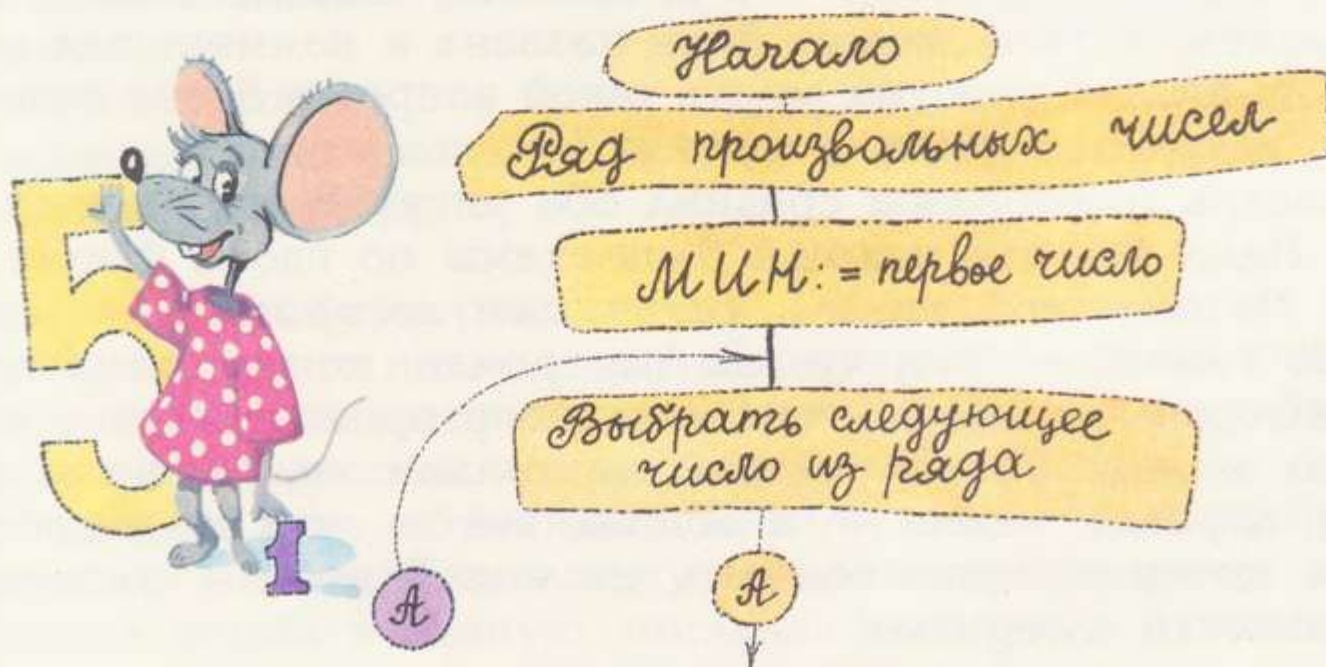 Начало
Ряд произвольных чисел
МИН: = первое число
Выбрать следующее
число из ряда
5
1
А
А